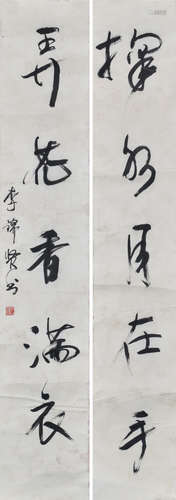 掬水月在手
弄花香满衣
李锦贤书